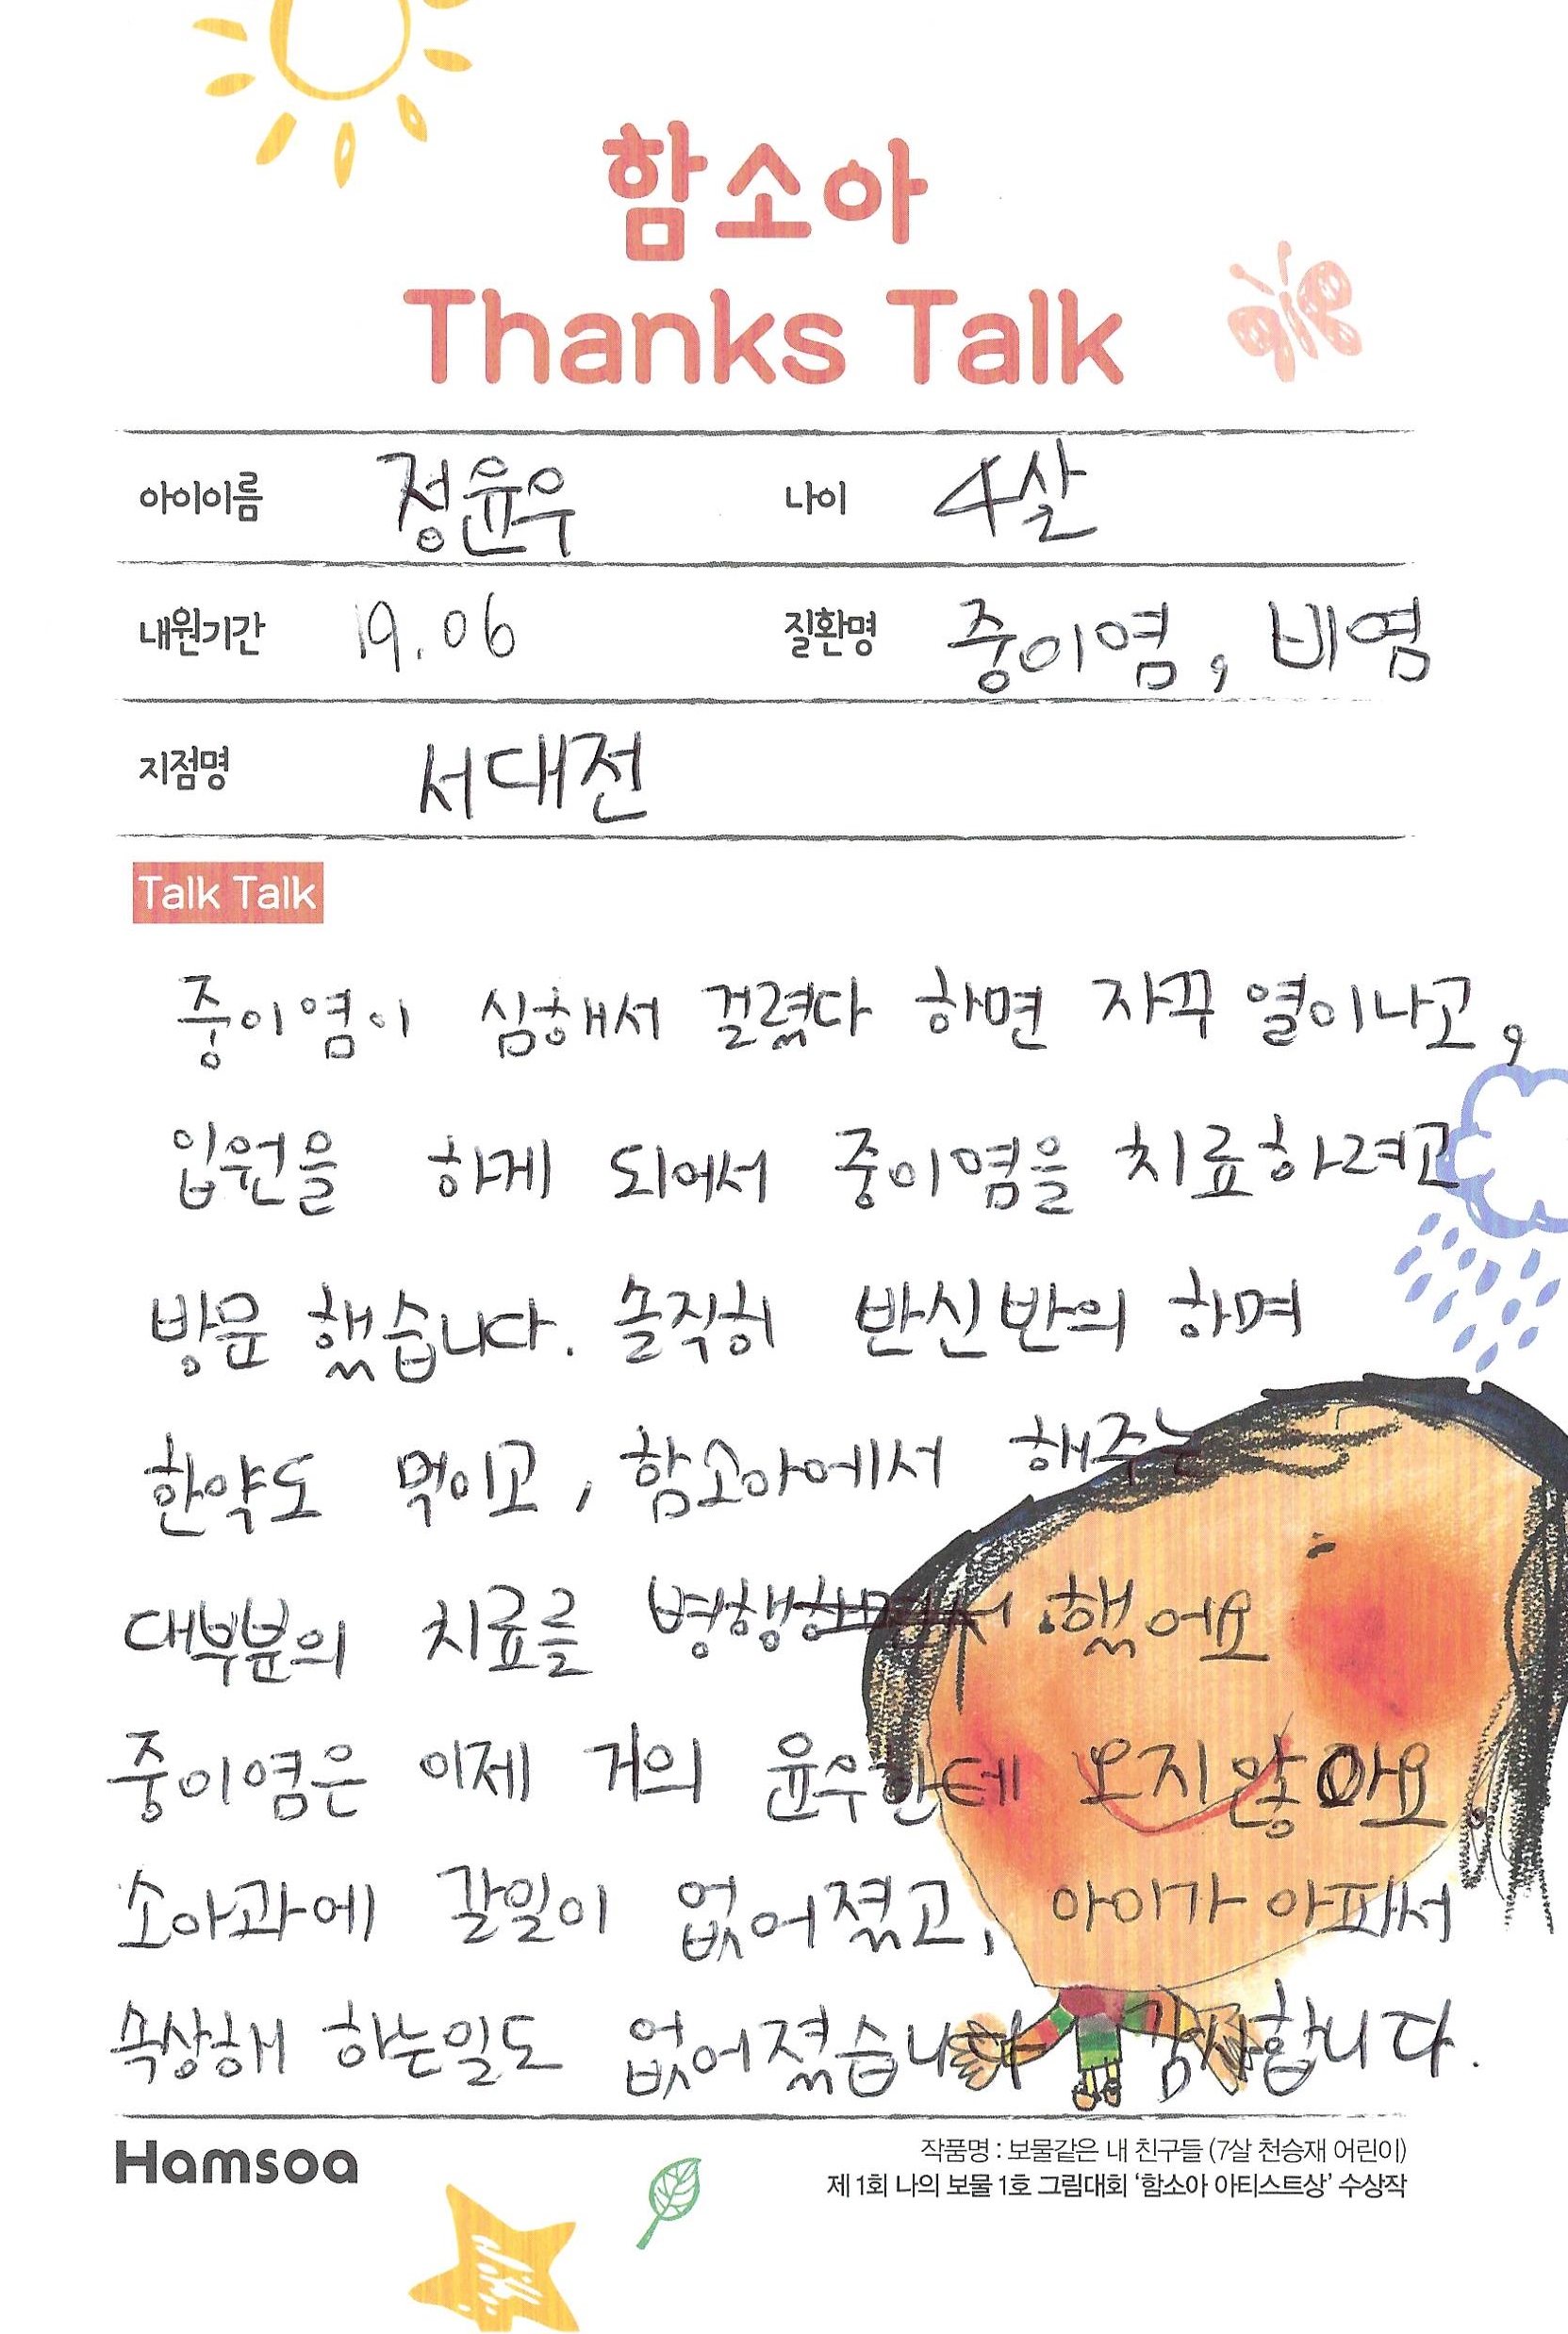 함소아
Thanks Talk
아이이름 정윤우 나이 4살
내원기간 19.06 질환명 중이염, 비염
지점명 서대전
Talk Talk
중이염이 심해서 걸렸다 하면 자꾸 열이나고,
입원을 하게 되어서 중이염을 치료하려고
방문 했습니다. 솔직히 반신반의 하며
한약도 먹이고, 함소아에서 해주는
대부분의 치료를 병행 했어요
중이염은 이제 거의 윤우한테 오지않아요.
소아과에 갈일이 없어졌고, 아이가 아파서
속상해 하는일도 없어졌습니다 감사합니다.
Hamsoa
작품명 : 보물같은 내 친구들 (7살 천승재 어린이)
제 1회 나의 보물 1호 그림대회 '함소아 아티스트상' 수상작